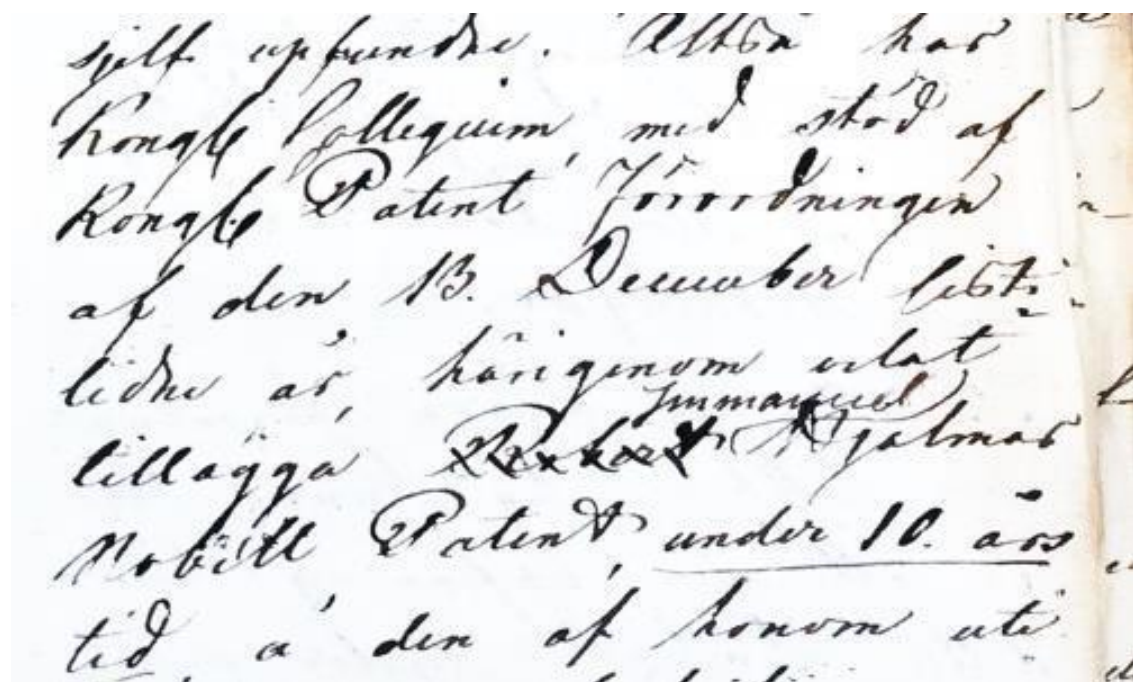 sjelf upfundne. Altså har
Kongl. Collegium, med stöd af
Kongl. Patent Förordningen
af den 13. December sist-
lidne år, härigenom velat
Immanuel
tillägga Hjalmar
Nobell Patent, under 10. års
tid å den af honom uti